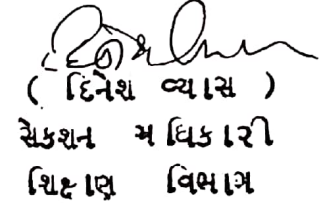 ( દિનેશ વ્યાસ )
સેકશન અધિકારી
શિક્ષણ વિભાગ